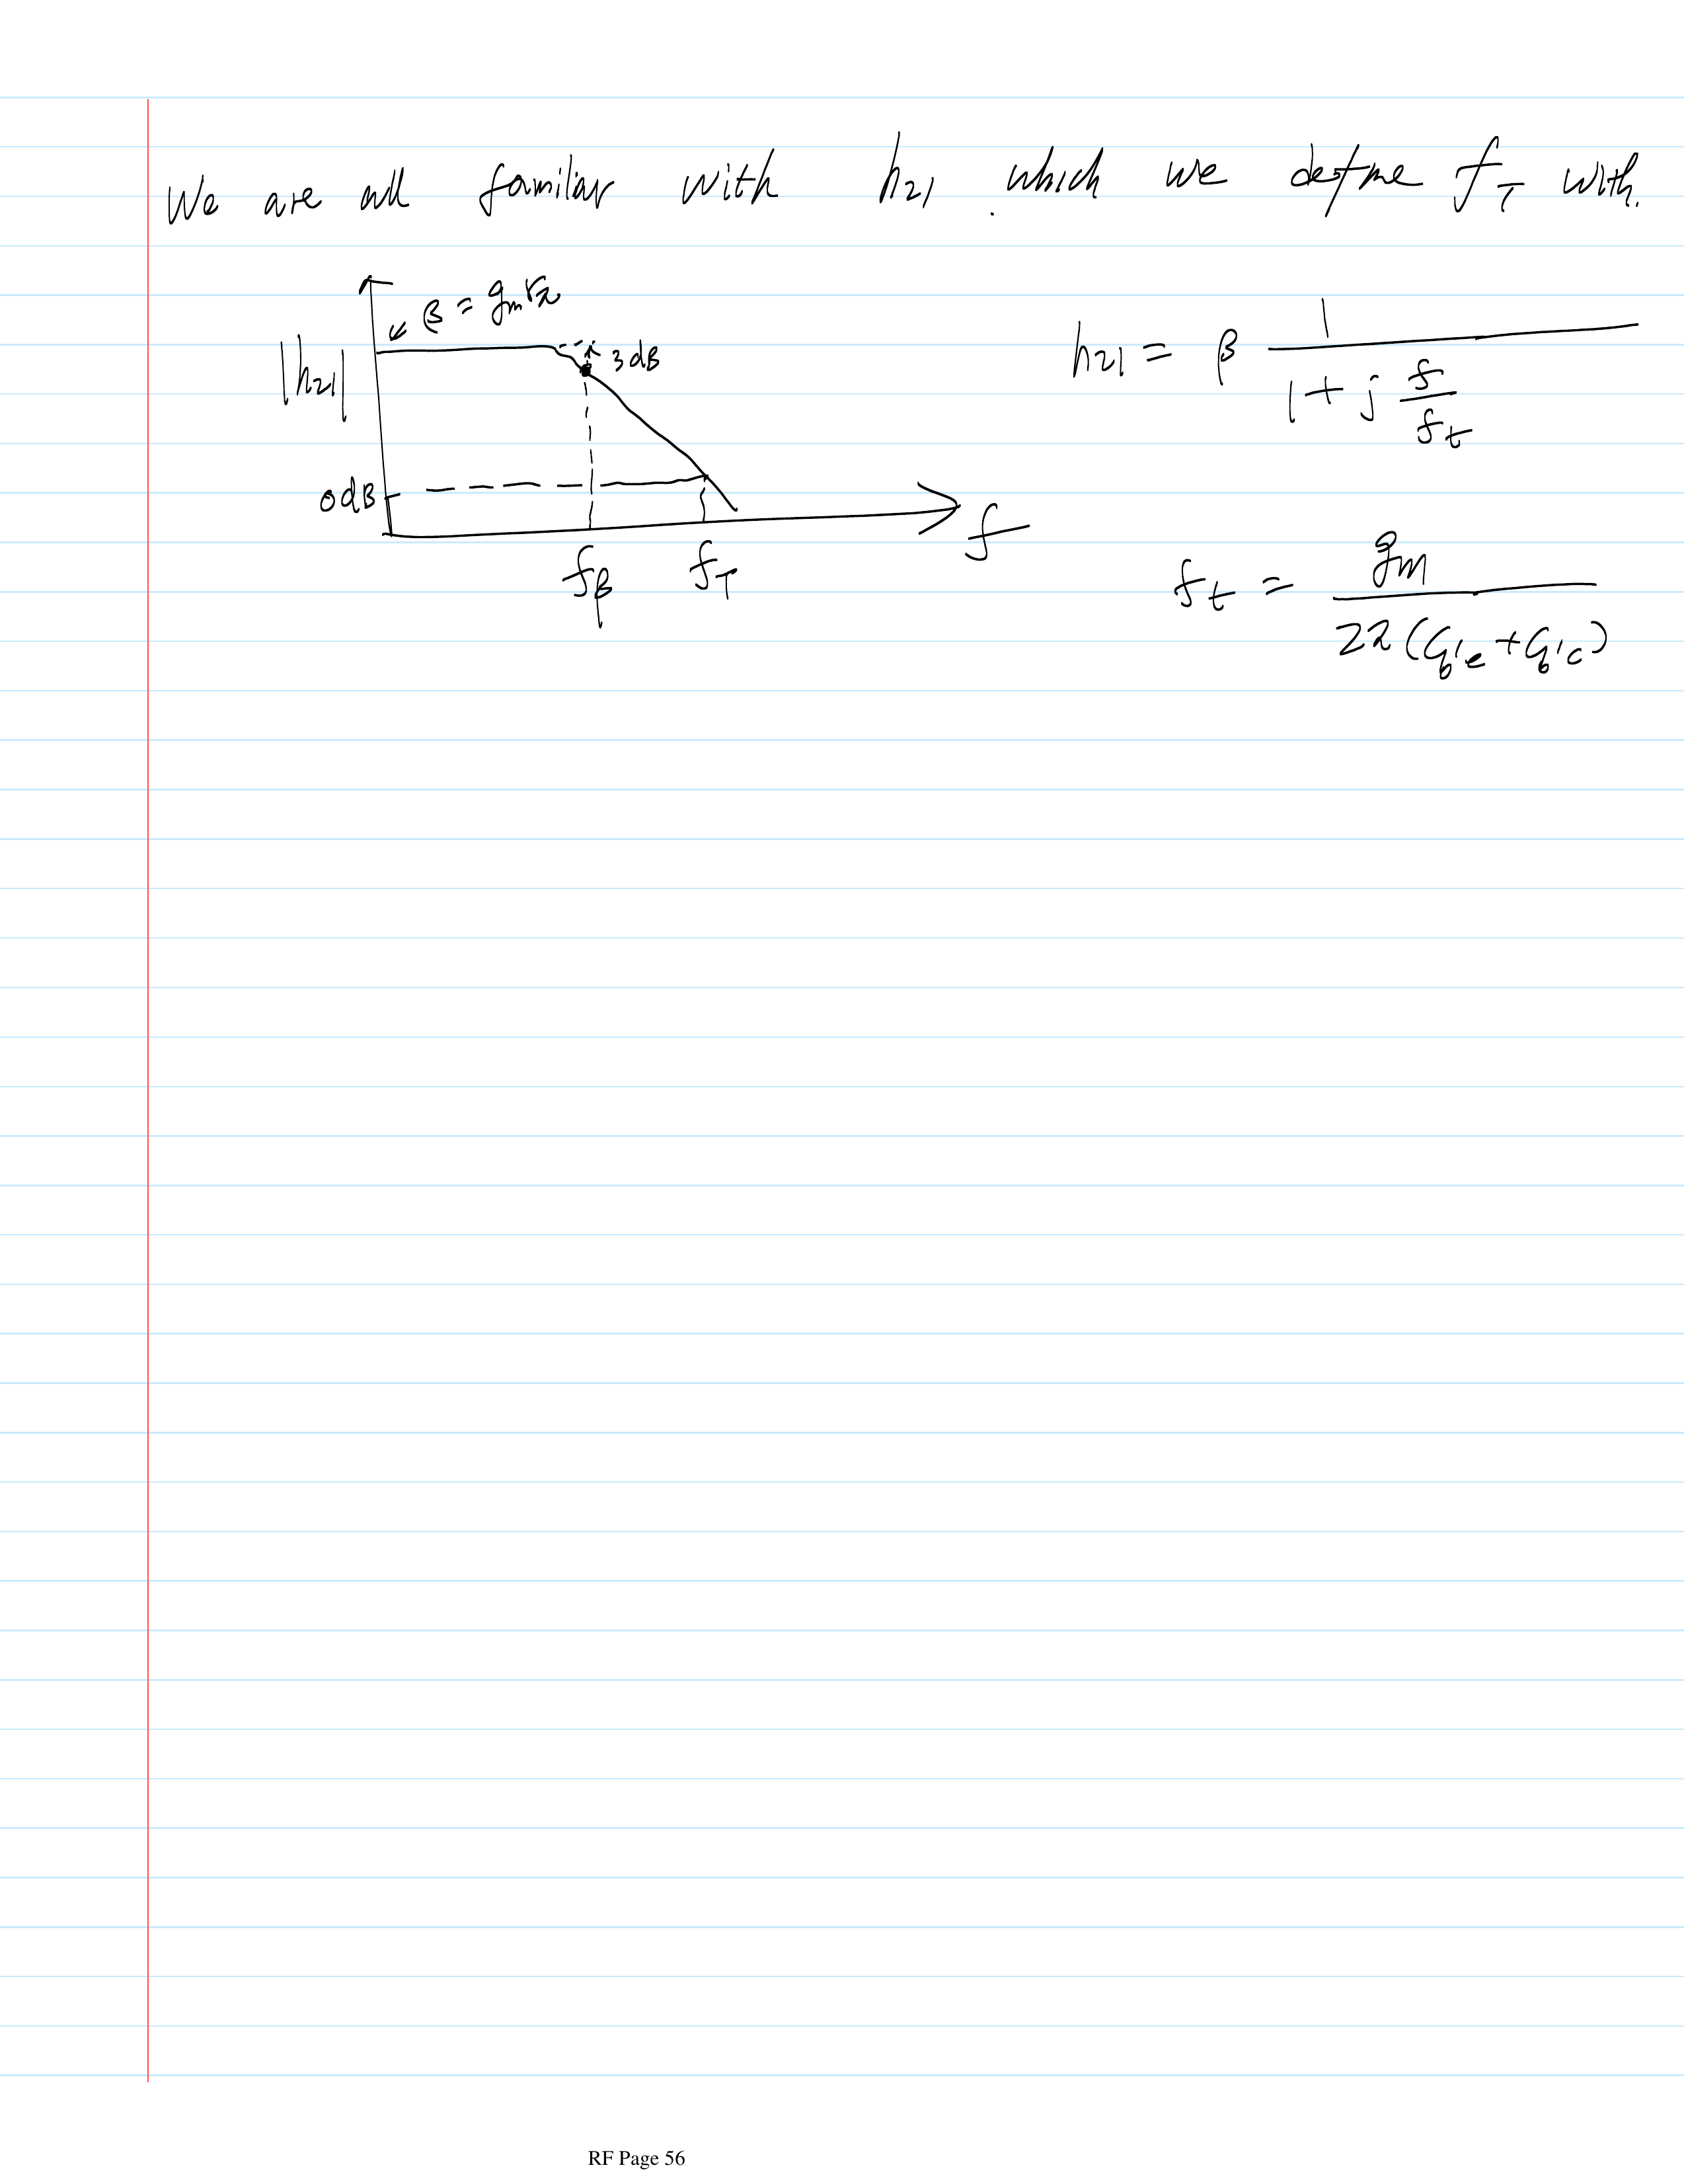 We are all familiar with h21. which we define fT with.
β = gm rπ
3dB
|h21|
0dB
fβ fT f
h21 = β 1 / (1 + j f/ft)
ft = gm / 2π(Cb'e + Cb'c)
RF Page 56